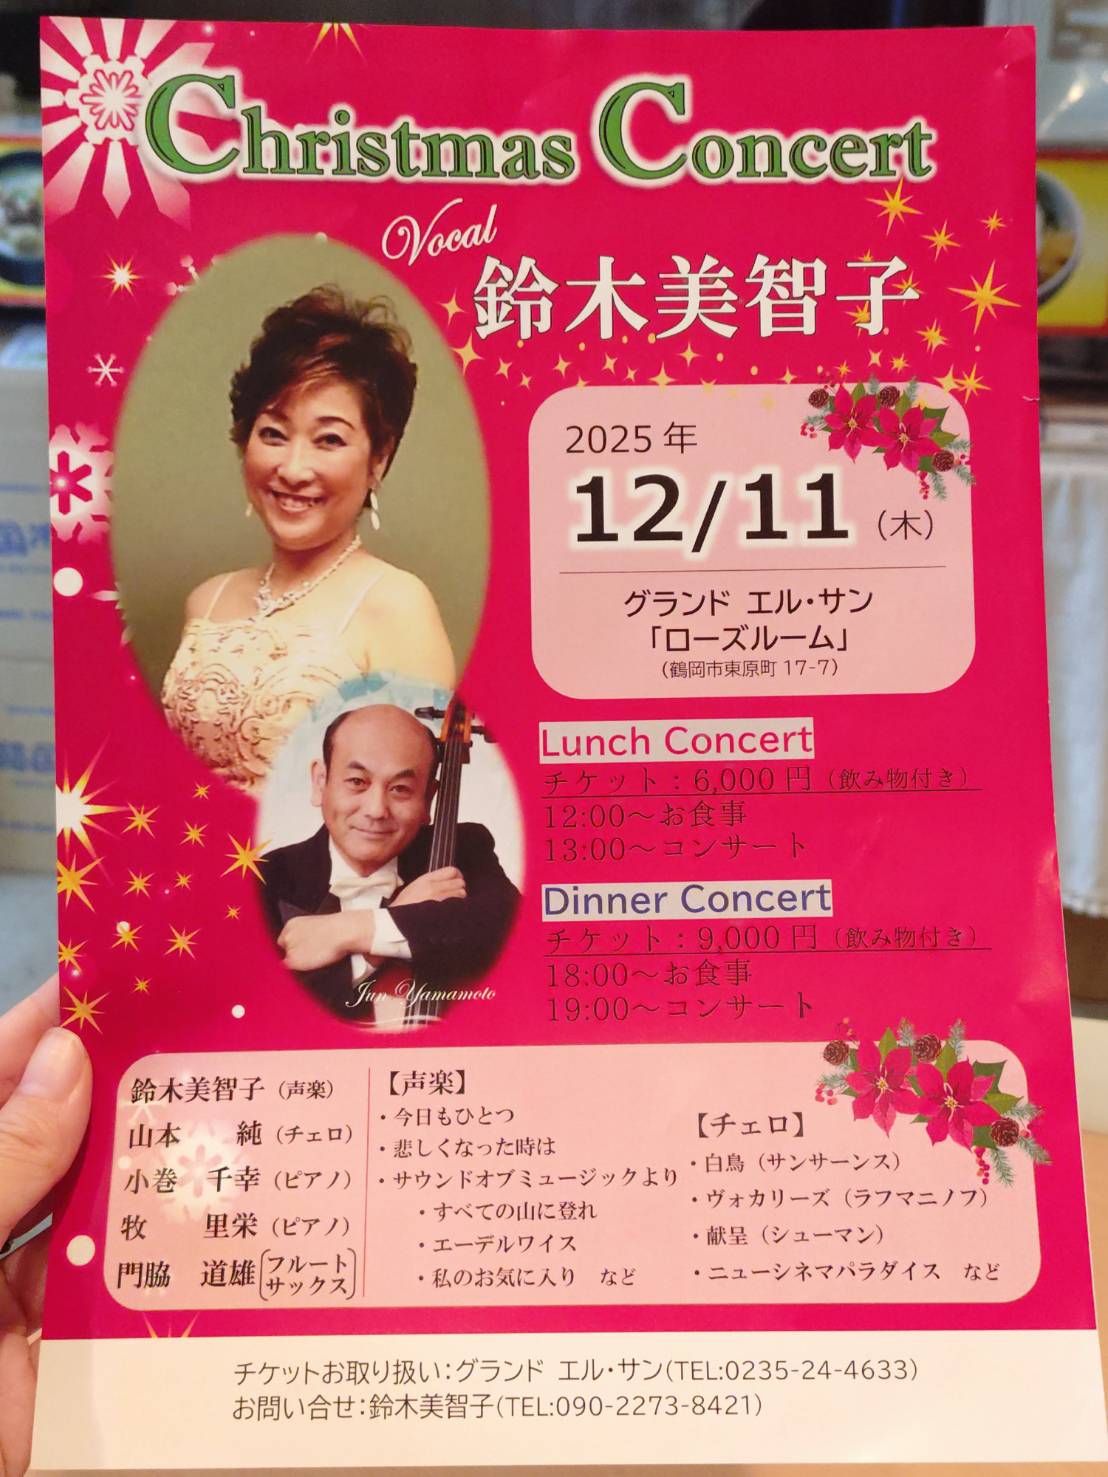 Christmas Concert
Vocal
鈴木美智子
2025年
12/11（木）
グランド エル・サン
「ローズルーム」
（鶴岡市東原町 17-7）
Lunch Concert
チケット：6,000円（飲み物付き）
12:00～お食事
13:00～コンサート
Dinner Concert
チケット：9,000円（飲み物付き）
18:00～お食事
19:00～コンサート
Jun Yamamoto
鈴木美智子（声楽）
山本　純（チェロ）
小巻　千幸（ピアノ）
牧　里栄（ピアノ）
門脇　道雄〔フルート
サックス〕
【声楽】
・今日もひとつ
・悲しくなった時は
・サウンドオブミュージックより
・すべての山に登れ
・エーデルワイス
・私のお気に入り　など
【チェロ】
・白鳥（サンサーンス）
・ヴォカリーズ（ラフマニノフ）
・献呈（シューマン）
・ニューシネマパラダイス　など
チケットお取り扱い：グランド エル・サン(TEL:0235-24-4633)
お問い合せ：鈴木美智子(TEL:090-2273-8421)